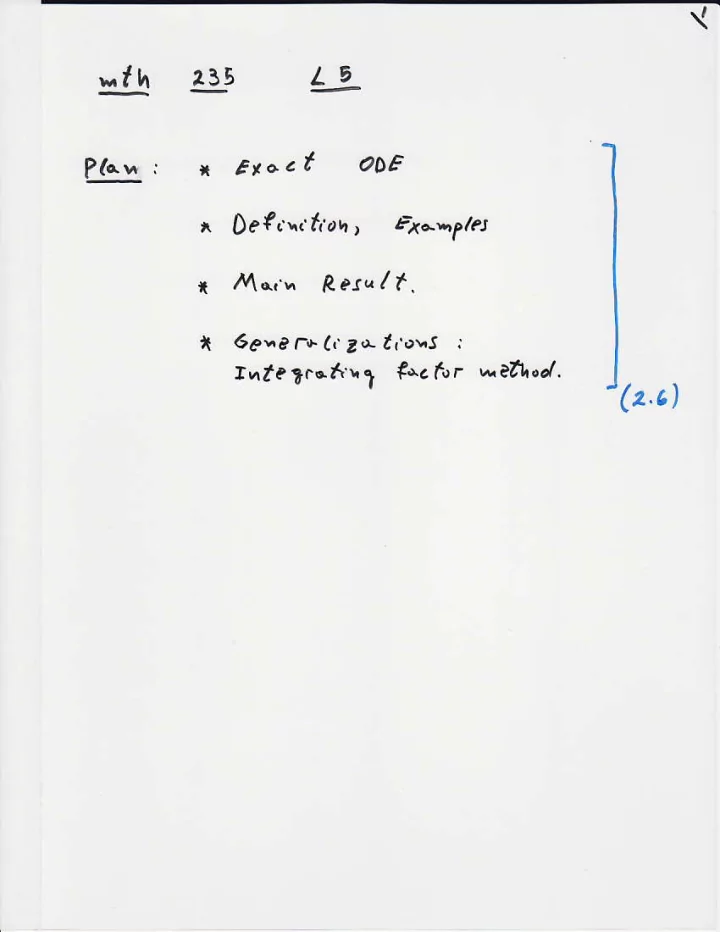 mth 235 L5
Plan: * Exact ODE
* Definition, Examples
* Main Result.
* Generalizations:
Integrating factor method.
(2.6)